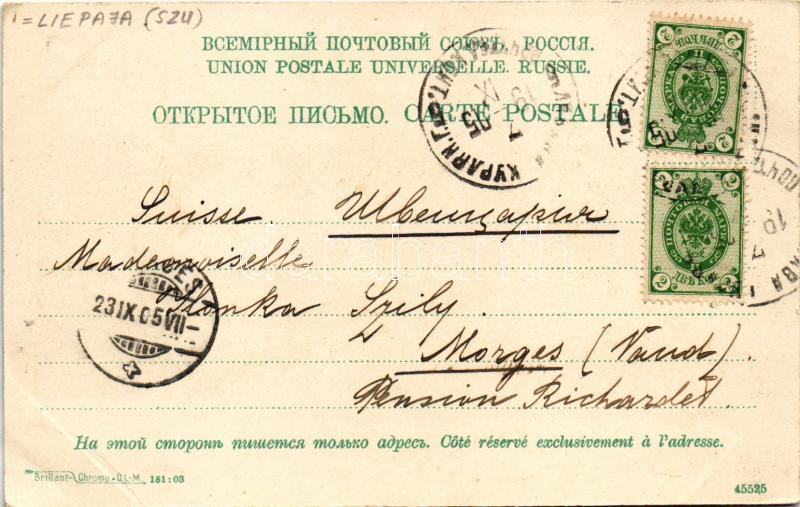 = LIEPAJA (SZU)
ВСЕМІРНЫЙ ПОЧТОВЫЙ СОЮЗЪ. РОССІЯ.
UNION POSTALE UNIVERSELLE. RUSSIE.
ОТКРЫТОЕ ПИСЬМО. CARTE POSTALE.
Suisse. Швейцарія
Mademoiselle
Ilonka Szily.
Morges (Vaud).
Pension Richardet.
23 IX 05 VII
На этой сторонѣ пишется только адресъ. Côté réservé exclusivement à l'adresse.
Brillant-Chromo-O.L-M. 151:03
45525